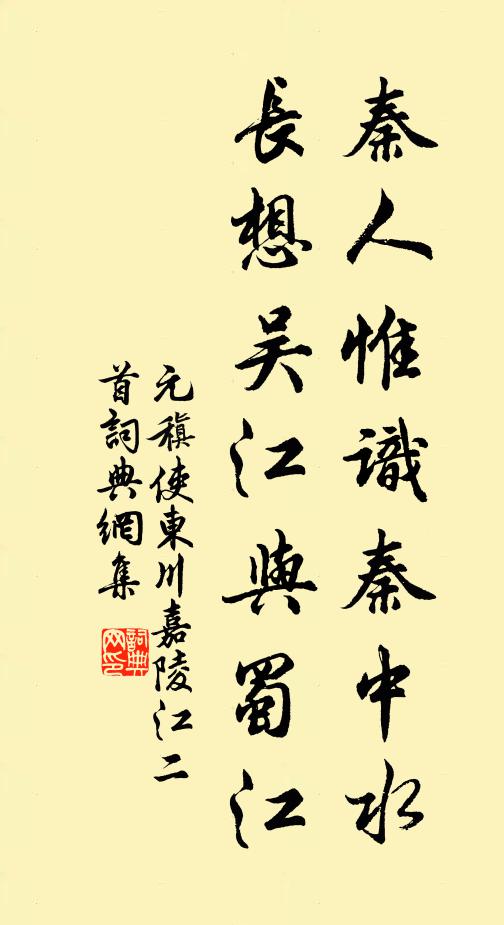 秦人惟識秦中水
長想吴江與蜀江
元稹使東川嘉陵江二
首詞典網集
詞典
网印